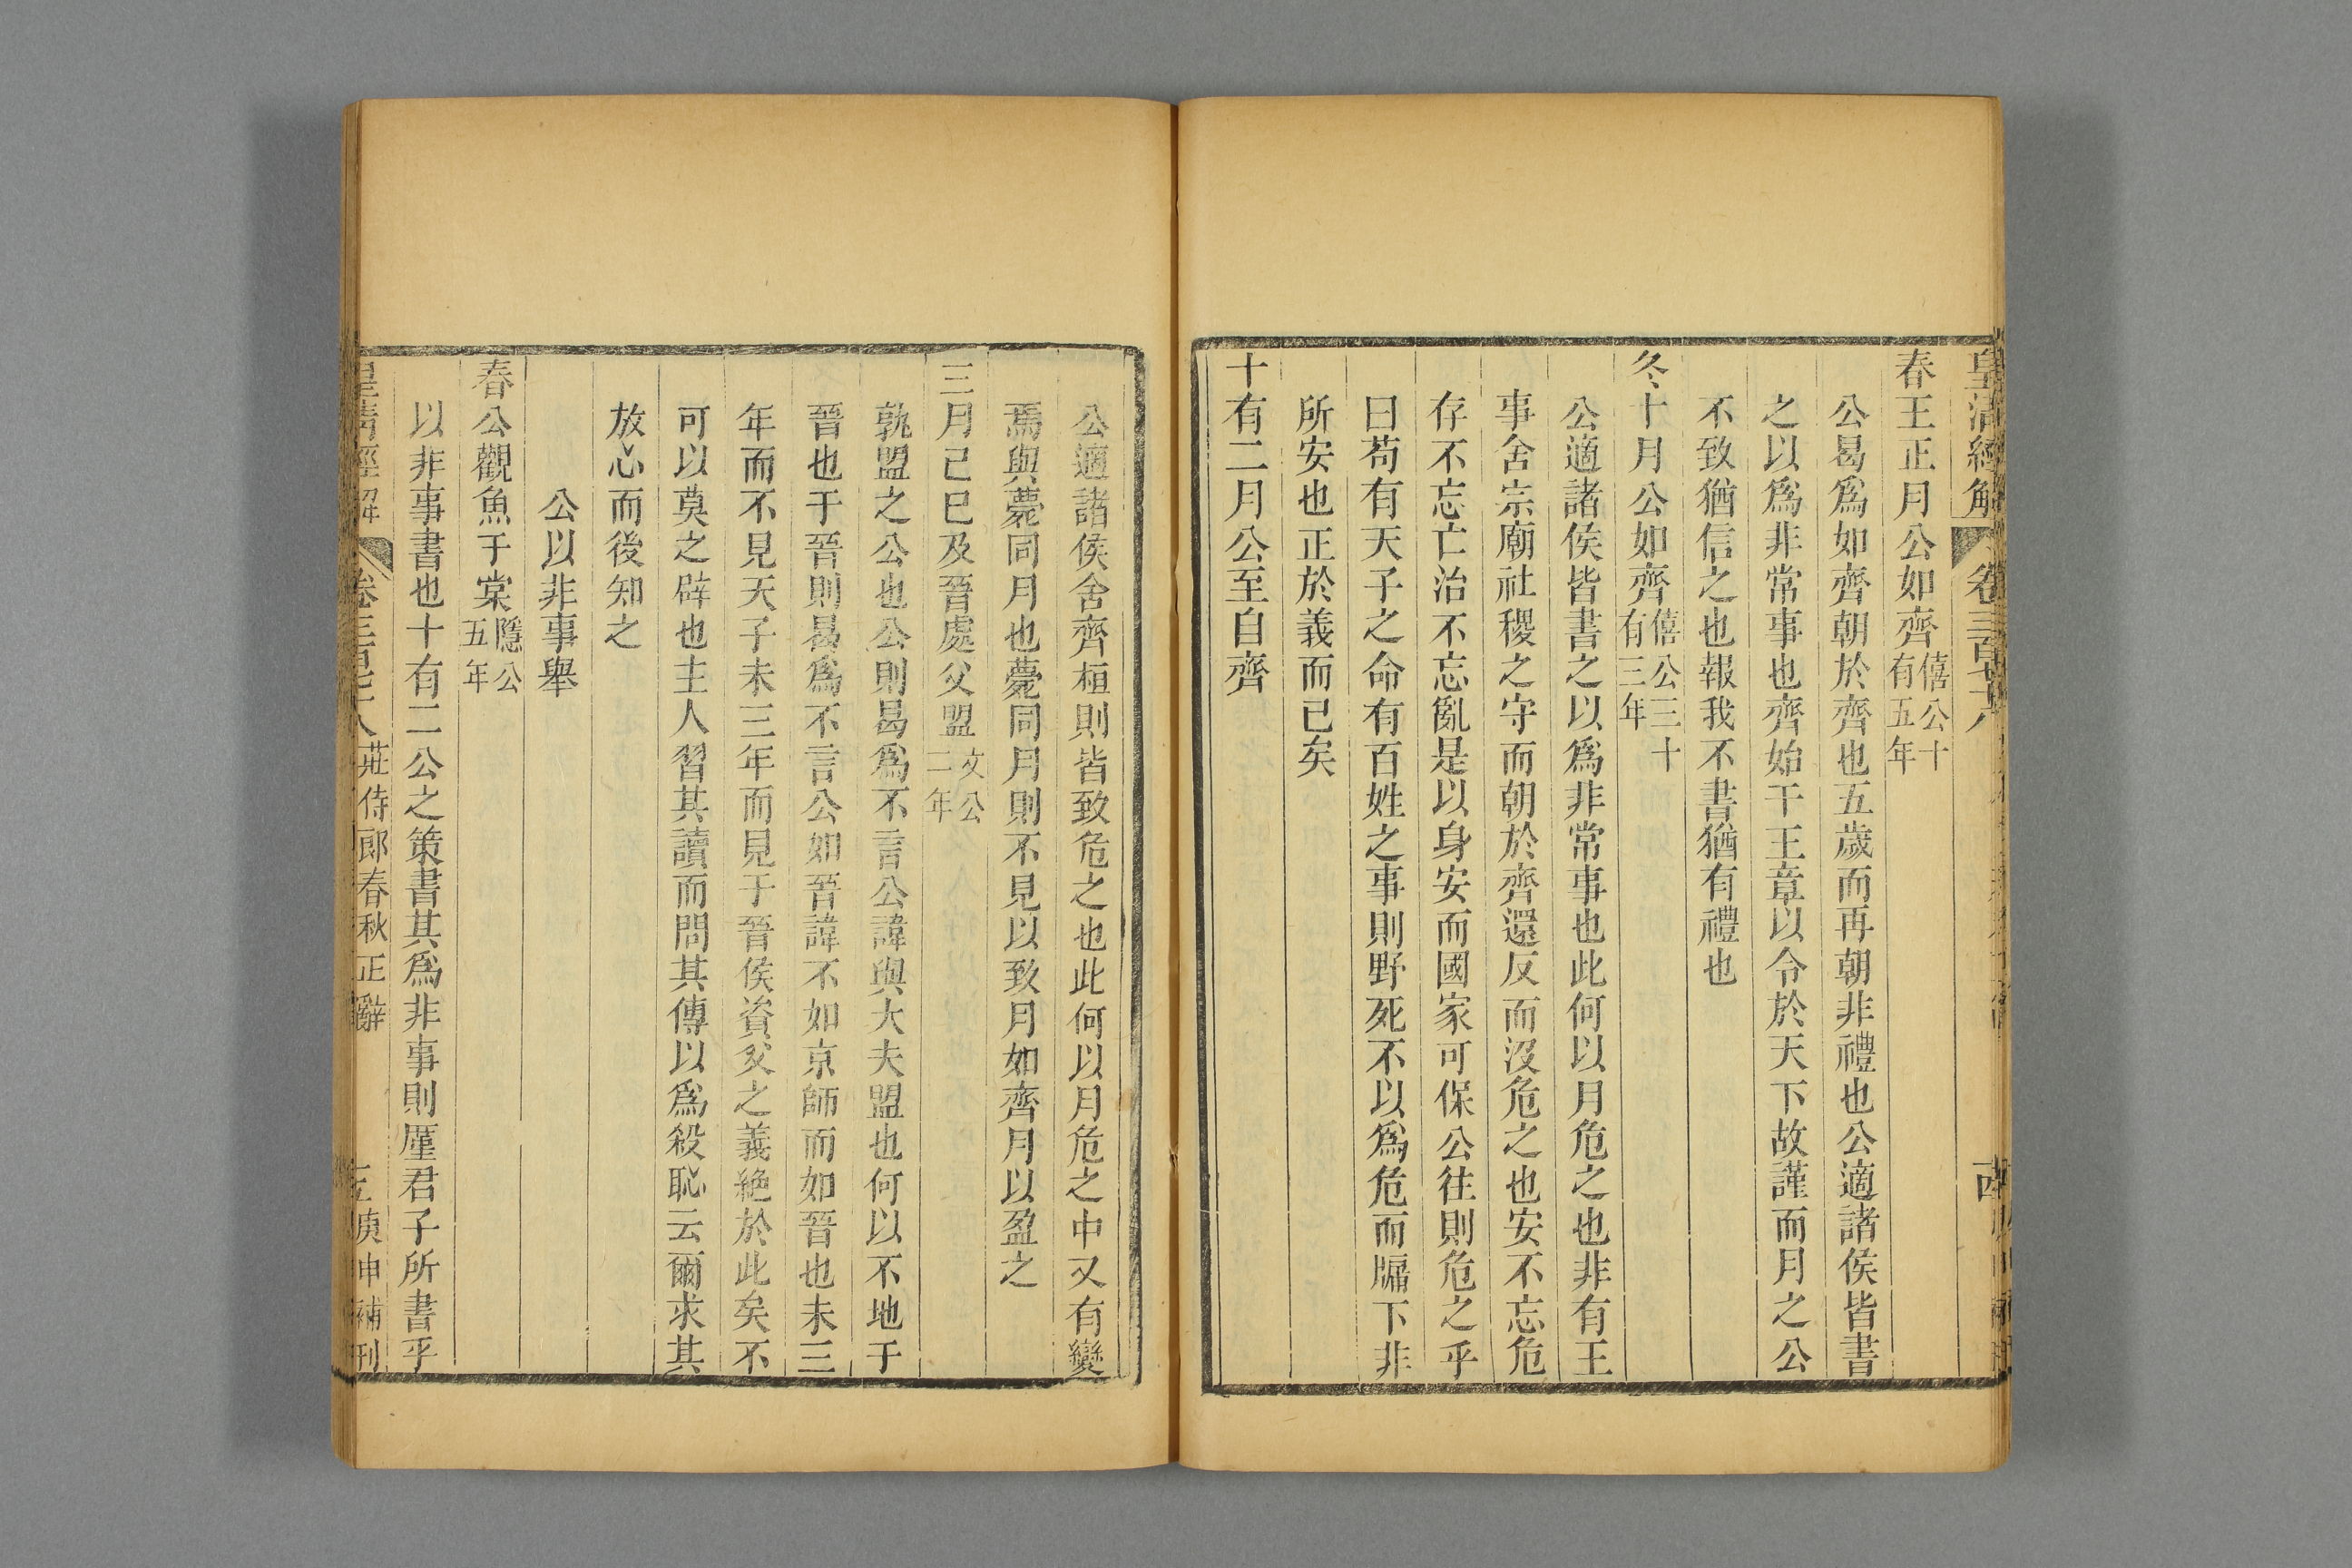 皇清經解 卷三百七十八
春王正月公如齊僖公十有五年
公曷爲如齊朝於齊也五歲而再朝非禮也公適諸侯皆書
之以爲非常事也齊始干王章以令於天下故謹而月之公
不致猶信之也報我不書猶有禮也
冬十月公如齊僖公三十有三年
公適諸侯皆書之以爲非常事也此何以月危之也非有王
事舍宗廟社稷之守而朝於齊還反而沒危之也安不忘危
存不忘亡治不忘亂是以身安而國家可保公往則危之乎
曰苟有天子之命有百姓之事則野死不以爲危而牖下非
所安也正於義而已矣
十有二月公至自齊
公適諸侯舍齊桓則皆致危之也此何以月危之中又有變
焉與薨同月也薨同月則不見以致月如齊月以盈之
三月己巳及晉處父盟文公二年
孰盟之公也公則曷爲不言公諱與大夫盟也何以不地于
晉也于晉則曷爲不言公如晉諱不如京師而如晉也未三
年而不見天子未三年而見于晉侯資父之義絶於此矣不
可以莫之辟也主人習其讀而問其傳以爲殺恥云爾求其
放心而後知之
公以非事舉
春公觀魚于棠隱公五年
以非事書也十有二公之策書其爲非事則厪君子所書乎
皇清經解 卷三百七十八 莊侍郎春秋正辭 庚申補刊